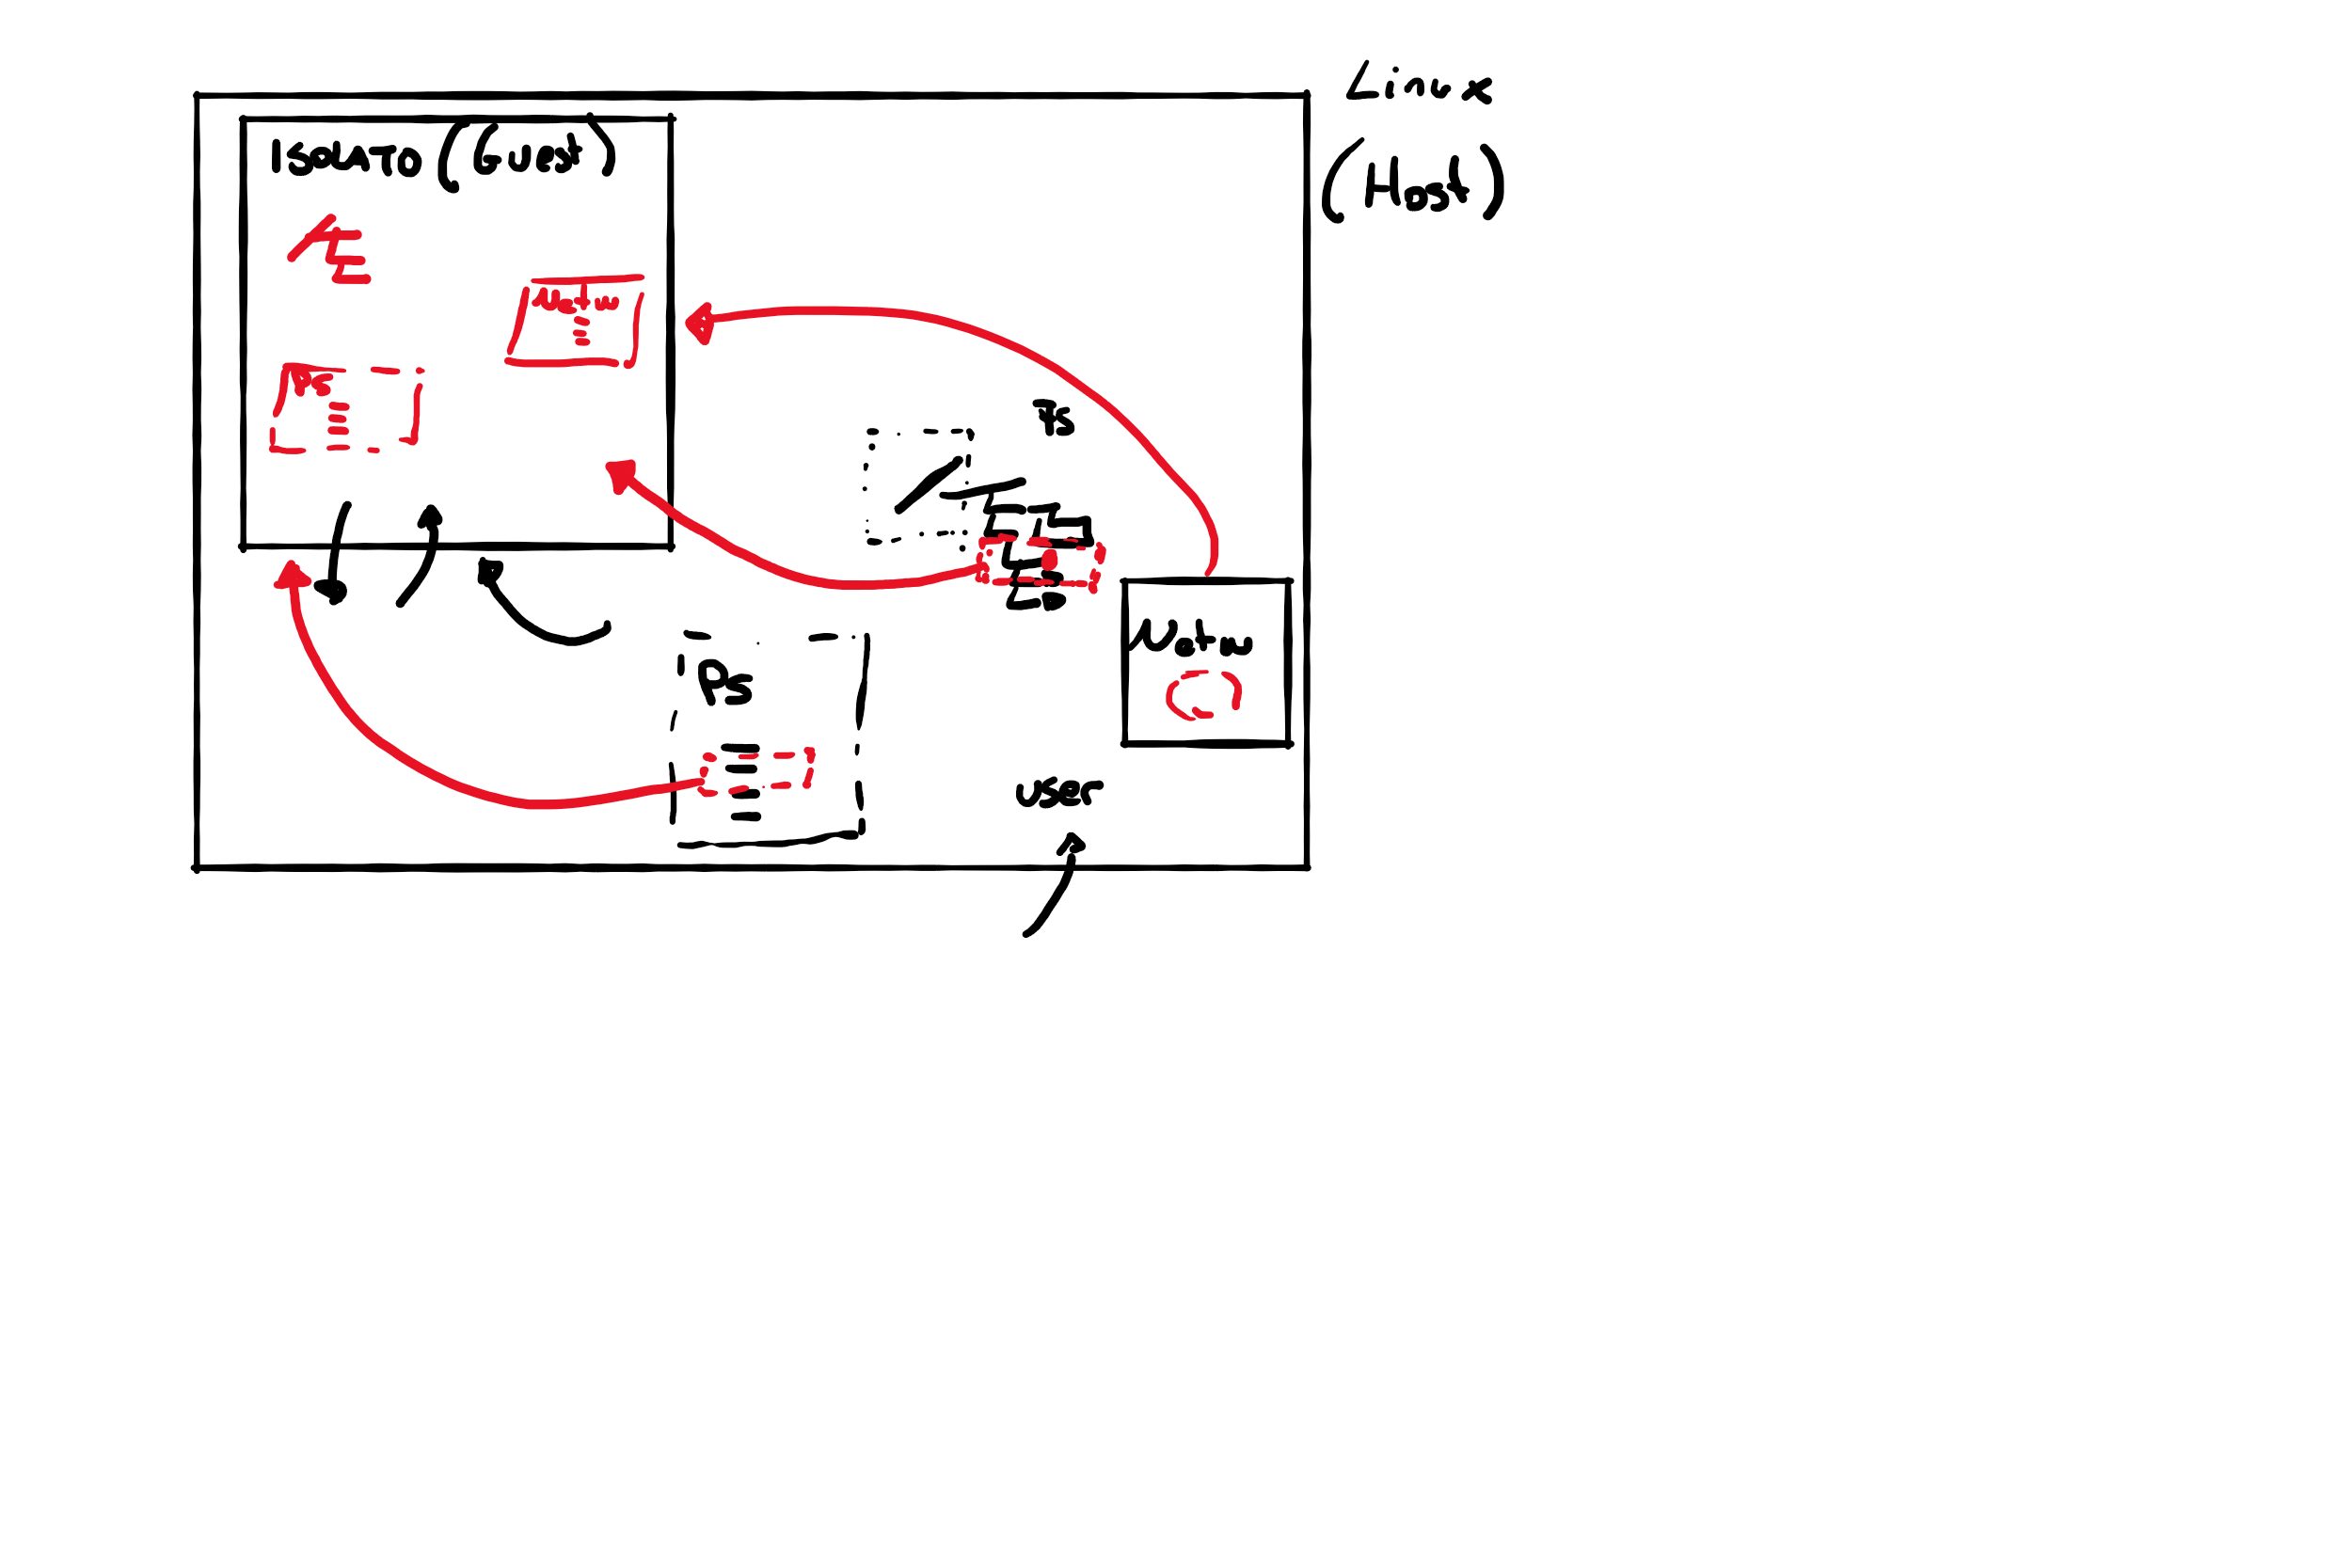 Linux
(Host)
ISOLATO (Guest)
/
Net w
Ps
FS
/
Ps
Net w
user